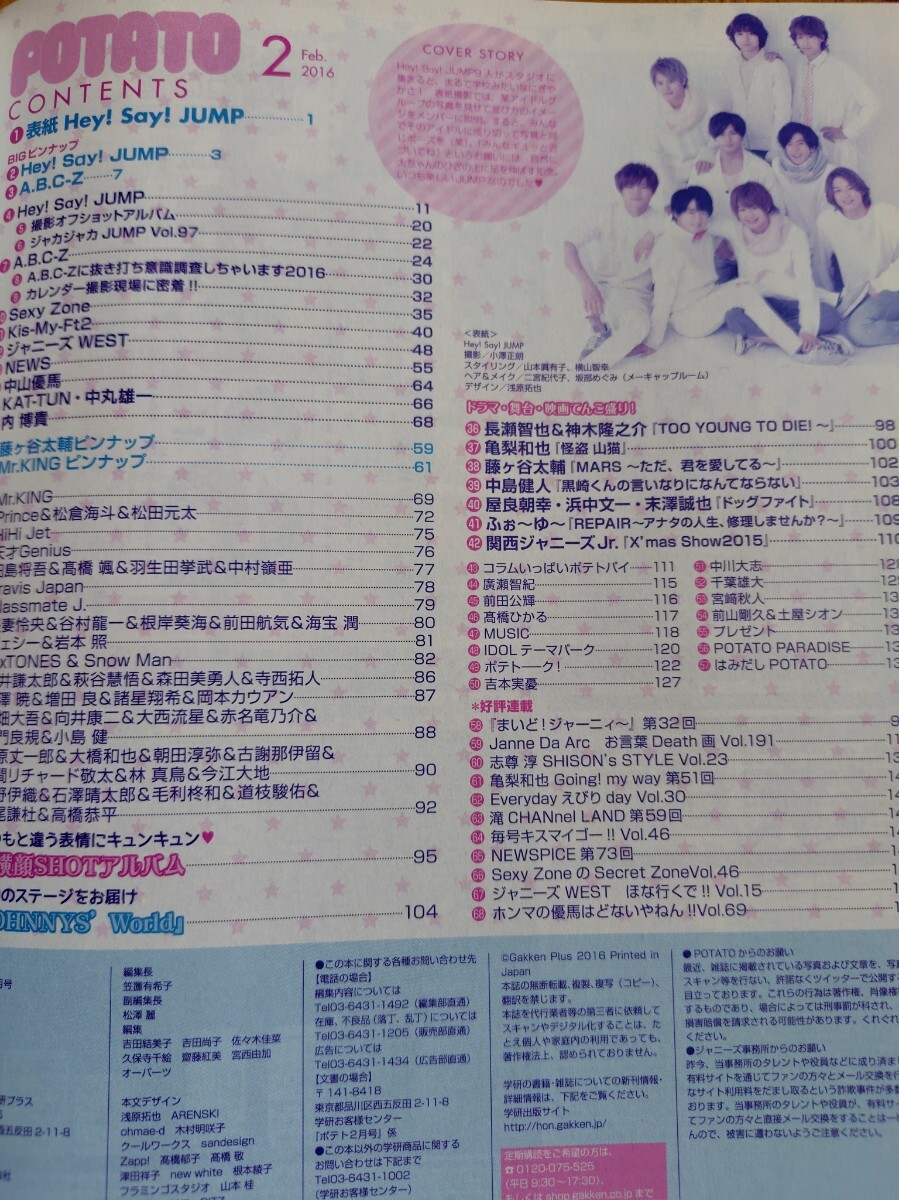 POTATO
2 Feb. 2016
CONTENTS
1 表紙 Hey! Say! JUMP 1
BIGピンナップ
2 Hey! Say! JUMP 3
3 A.B.C-Z 7
4 Hey! Say! JUMP 11
5 撮影オフショットアルバム 20
6 ジャカジャカ JUMP Vol.97 22
7 A.B.C-Z 24
8 A.B.C-Zに抜き打ち意識調査しちゃいます2016 30
9 カレンダー撮影現場に密着!! 32
Sexy Zone 35
Kis-My-Ft2 40
ジャニーズ WEST 48
NEWS 55
中山優馬 64
KAT-TUN・中丸雄一 66
内 博貴 68
藤ヶ谷太輔ピンナップ 59
Mr.KING ピンナップ 61
Mr.KING 69
Prince&松倉海斗&松田元太 72
HiHi Jet 75
天才Genius 76
島将吾&髙橋 颯&羽生田挙武&中村嶺亜 77
Travis Japan 78
lassmate J. 79
妻怜央&谷村龍一&根岸葵海&前田航気&海宝 潤 80
ェシー&岩本 照 81
xTONES & Snow Man 82
井謙太郎&萩谷慧悟&森田美勇人&寺西拓人 86
澤 暁&増田 良&諸星翔希&岡本カウアン 87
畑大吾&向井康二&大西流星&赤名竜乃介&
門良規&小島 健 88
原丈一郎&大橋和也&朝田淳弥&古謝那伊留&
間リチャード敬太&林 真鳥&今江大地 90
野伊織&石澤晴太郎&毛利柊和&道枝駿佑&
尾謙杜&高橋恭平 92
つもと違う表情にキュンキュン♥
横顔SHOTアルバム 95
のステージをお届け
OHNNYS' World』 104
COVER STORY
Hey! Say! JUMP9人がスタジオに
<表紙>
Hey! Say! JUMP
撮影/小澤正朗
スタイリング/山本眞有子、横山智幸
ヘア&メイク/二宮紀代子、坂部めぐみ(メーキャップルーム)
デザイン/浅原拓也
ドラマ・舞台・映画てんこ盛り!
36 長瀬智也&神木隆之介『TOO YOUNG TO DIE! ~』 98
37 亀梨和也『怪盗 山猫』 100
38 藤ヶ谷太輔『MARS ~ただ、君を愛してる~』 102
39 中島健人『黒崎くんの言いなりになんてならない』 103
40 屋良朝幸・浜中文一・末澤誠也『ドッグファイト』 108
41 ふぉ~ゆ~『REPAIR~アナタの人生、修理しませんか?~』 109
42 関西ジャニーズJr.『X'mas Show2015』 110
43 コラムいっぱいポテトパイ 111
44 廣瀬智紀 115
45 前田公輝 116
46 髙橋ひかる 117
47 MUSIC 118
48 IDOL テーマパーク 120
49 ポテトーク! 122
50 吉本実憂 127
51 中川大志 128
52 千葉雄大 129
53 宮﨑秋人 13
54 前山剛久&土屋シオン 13
55 プレゼント 13
56 POTATO PARADISE 13
57 はみだし POTATO 13
*好評連載
58 『まいど!ジャーニィ~』第32回 9
59 Janne Da Arc お言葉 Death 画 Vol.191 11
60 志尊 淳 SHISON's STYLE Vol.23 13
61 亀梨和也 Going! my way 第51回 14
62 Everyday えびり day Vol.30 14
63 滝 CHANnel LAND 第59回 14
64 毎号キスマイゴー!! Vol.46 14
65 NEWSPICE 第73回 1
66 Sexy Zone の Secret ZoneVol.46 1
67 ジャニーズ WEST ほな行くで!! Vol.15 1
68 ホンマの優馬はどないやねん!!Vol.69 1
月号
研プラス
西五反田 2-11-8
編集長
笠置有希子
副編集長
松澤 麗
編集
吉田結美子 吉田尚子 佐々木佳菜
久保寺千絵 齋藤紅美 宮西由加
オーパーツ
本文デザイン
浅原拓也 ARENSKI
ohmae-d 木村明咲子
クールワークス sandesign
Zapp! 髙橋郁子 髙橋 敬
津田祥子 new white 根本綾子
フラミンゴスタジオ 山本 桂
●この本に関する各種お問い合わせ先
【電話の場合】
編集内容については
Tel03-6431-1492(編集部直通)
在庫、不良品(落丁、乱丁)については
Tel03-6431-1205(販売部直通)
広告については
Tel03-6431-1434(広告部直通)
【文書の場合】
〒141-8418
東京都品川区西五反田 2-11-8
学研お客様センター
『ポテト2月号』係
●この本以外の学研商品に関する
お問い合わせは下記まで
Tel03-6431-1002
(学研お客様センター)
©Gakken Plus 2016 Printed in
Japan
本誌の無断転載、複製、複写(コピー)、
翻訳を禁じます。
本誌を代行業者等の第三者に依頼して
スキャンやデジタル化することは、た
とえ個人や家庭内の利用であっても、
著作権法上、認められておりません。
学研の書籍・雑誌についての新刊情報・
詳細情報は、下記をご覧ください。
学研出版サイト
http://hon.gakken.jp/
定期購読をご希望の方は、
☎0120-075-525
(平日 9:30~17:30)、
もしくは shop.gakken.jp まで
●POTATOからのお願い
最近、雑誌に掲載されている写真および文章を、写真
スキャン等を行ない、許諾なくツイッターで公開する
目立っております。これらの行為は著作権、肖像権等
するものであり、場合によっては刑事罰が科され、
損害賠償を請求される可能性があります。くれぐれ
ください。
●ジャニーズ事務所からのお願い
昨今、当事務所のタレントや役員などに成り済まし
有料サイトを通じてファンの方々とメール交換を行
なサイト利用料をだまし取るという詐欺事件が多数
おります。当事務所のタレントや役員が、有料サー
てファンの方々と直接メール交換をすることは一
んので、被害に遭わないようご注意ください。